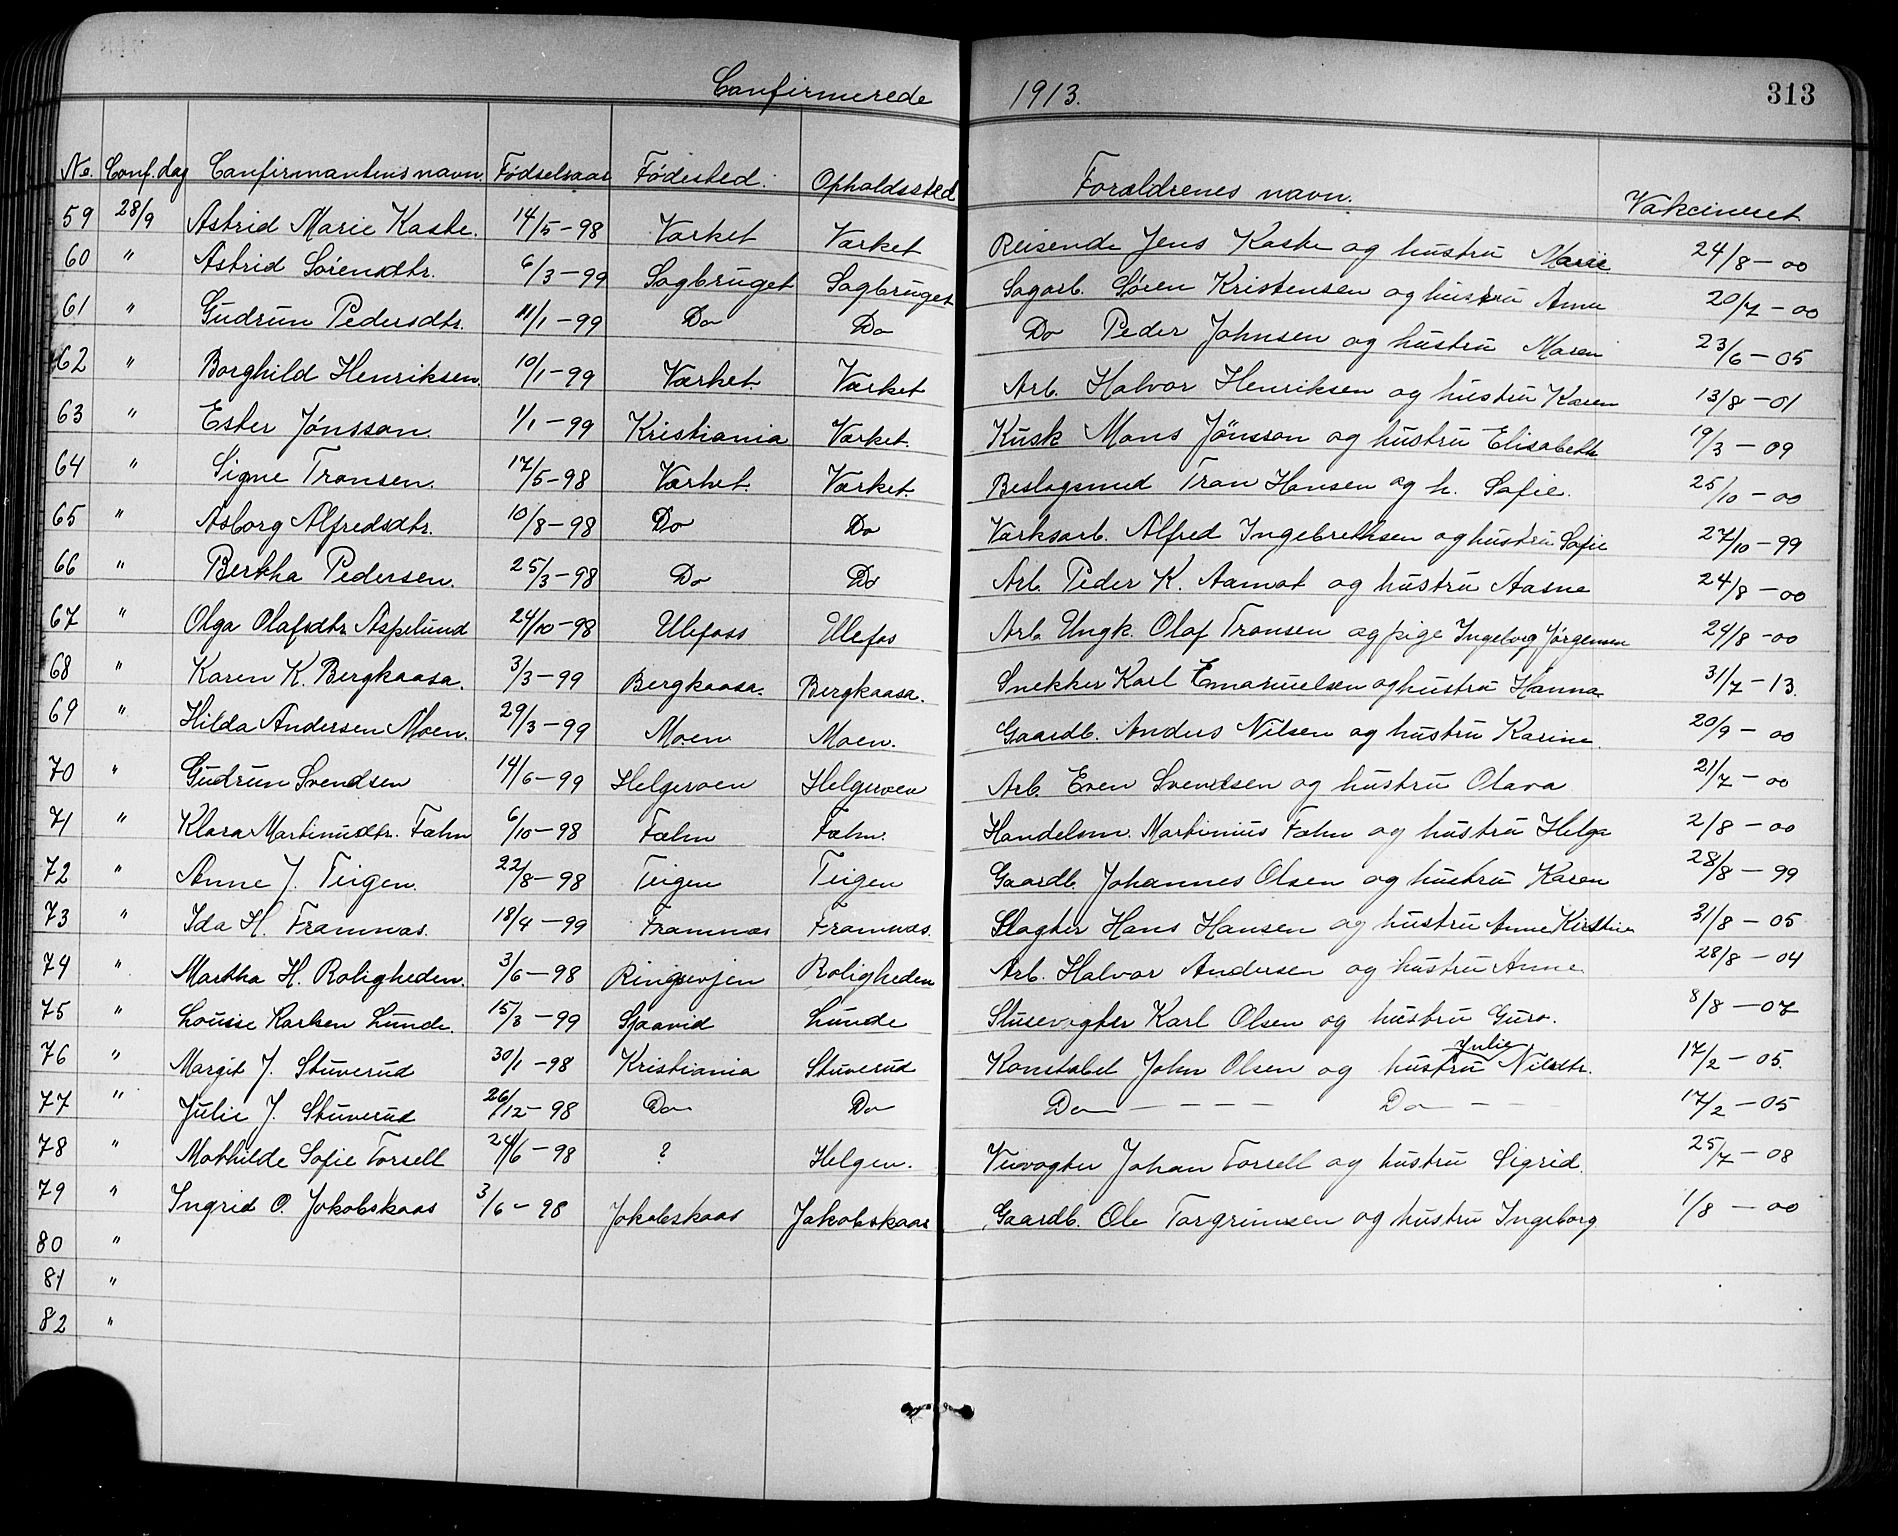 Confirmerede 1913. 313
No. Conf. dag Confirmantens navn. Fødselsaar Fødested. Opholdssted Forældrenes navn. Vakcineret.
59 28/9 Astrid Marie Kaste. 14/5-98 Værket Værket Reisende Jens Kaste og hustru Marie 24/8-00
60 " Astrid Sørensdtr. 6/3-99 Sagbruget Sagbruget Sagarb. Søren Kristensen og hustru Anne 20/7-00
61 " Gudrun Pedersdtr. 11/1-99 Do Do Do Peder Johnsen og hustru Maren 23/6-05
62 " Borghild Henriksen. 10/1-99 Værket. Værket Arb. Halvor Henriksen og hustru Karen 13/8-01
63 " Ester Jönsson. 1/1-99 Kristiania Værket. Kusk Mons Jönsson og hustru Elisabeth 19/3-09
64 " Signe Transen. 17/5-98 Værket. Værket. Beslagsmed Tran Hansen og h. Sofie. 25/10-00
65 " Asborg Alfredsdtr. 10/8-98 Do Do Værksarb. Alfred Ingebrethsen og hustru Sofie 27/10-99
66 " Bertha Pedersen. 25/3-98 Do Do Arb. Peder K. Aamot og hustru Aasne 24/8-00
67 " Olga Olafsdtr. Aspelund 24/10-98 Ulefoss Ulefos Arb. Ungk. Olaf Transen og pige Ingeborg Jørgensen 24/8-00
68 " Karen K. Bergkaasa. 3/3-99 Bergkaasa. Bergkaasa. Snekker Karl Emanuelsen og hustru Hanna 31/7-13.
69 " Hilda Andersen Moen. 29/3-99 Moen Moen. Gaardb. Anders Nilsen og hustru Karine. 20/9-00
70 " Gudrun Svendsen 14/6-99 Helgeroen Helgeroen Arb. Even Svendsen og hustru Olava 21/7-00
71 " Klara Martinusdtr. Fæhn 6/10-98 Fæhn Fæhn. Handelsm. Martinius Fæhn og hustru Helga 2/8-00
72 " Anne J. Teigen. 22/8-98 Teigen Teigen Gaardb. Johannes Olsen og hustru Karen 28/8-99
73 " Ida H. Framnæs. 18/4-99 Framnæs Framnæs. Slagter Hans Hansen og hustru Anne Kirstine 31/8-05
74 " Martha H. Roligheden. 3/6-98 Ringsevjen Roligheden Arb. Halvor Andersen og hustru Anne 28/8-04
75 " Louise Karlsen Lunde. 15/3-99 Sjaavid Lunde Slusevogter Karl Olsen og hustru Guro. 8/8-07
76 " Margit J. Stuverud 30/1-98 Kristiania Stuverud Konstabel John Olsen og hustru Julie Nilsdtr. 17/2-05.
77 " Julie J. Stuverud 26/12-98 Do Do Do - - - - Do - - 17/2-05
78 " Mathilde Sofie Torsell 24/6-98 ? Helgen. Veivogter Johan Torsell og hustru Sigrid. 25/7-08
79 " Ingrid O. Jakobskaas 3/6-98 Jakobskaas Jakobskaas Gaardb. Ole Torgrimsen og hustru Ingeborg 1/8-00
80 "
81 "
82 "